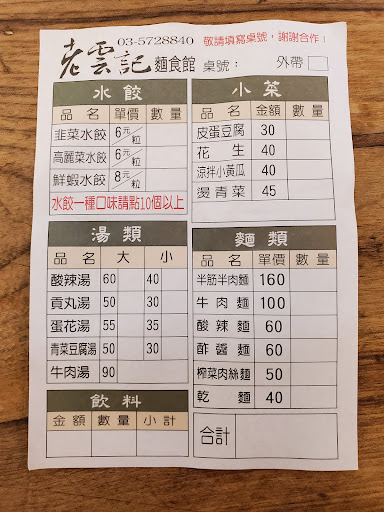 老雲記麵食館 03-5728840 敬請填寫桌號，謝謝合作！
桌號： 外帶
水餃
品名 單價 數量
韭菜水餃 6元/粒
高麗菜水餃 6元/粒
鮮蝦水餃 8元/粒
水餃一種口味請點10個以上
小菜
品名 金額 數量
皮蛋豆腐 30
花生 40
涼拌小黃瓜 40
燙青菜 45
湯類
品名 大 小
酸辣湯 60 40
貢丸湯 50 30
蛋花湯 55 35
青菜豆腐湯 50 30
牛肉湯 90
麵類
品名 單價 數量
半筋半肉麵 160
牛肉麵 100
酸辣麵 60
酢醬麵 60
榨菜肉絲麵 50
乾麵 40
飲料
金額 數量 小計
合計